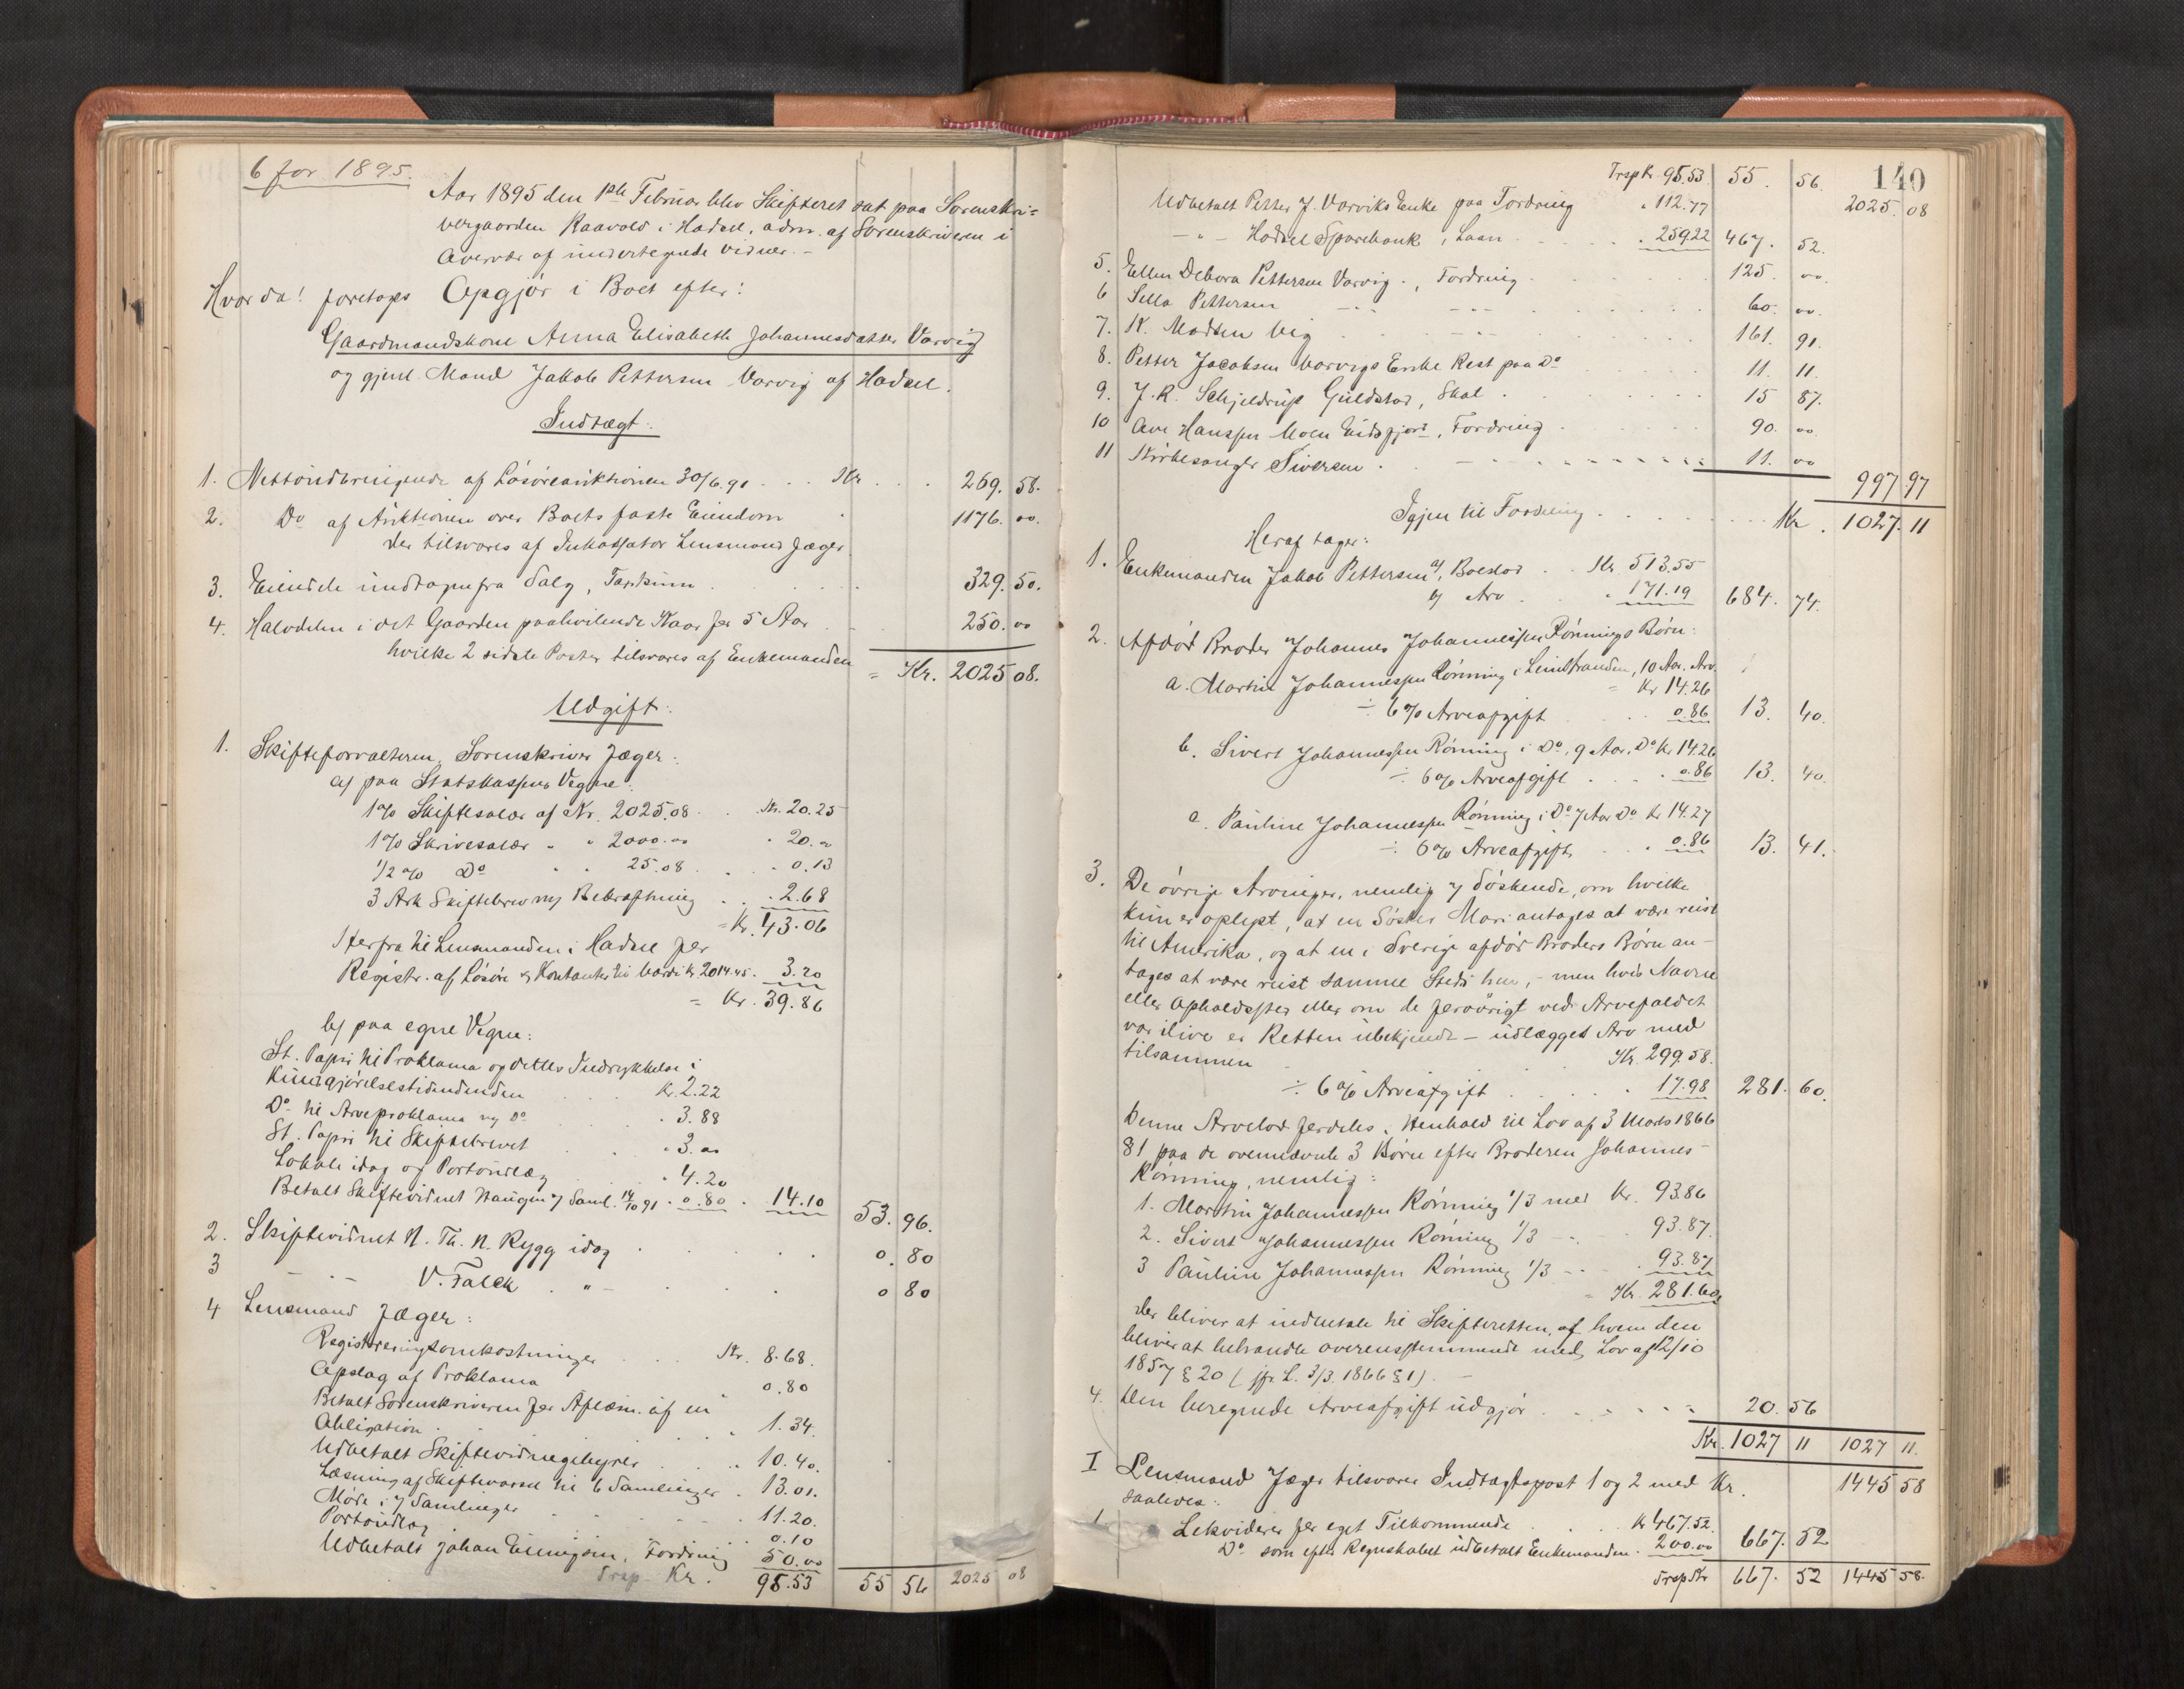 6 for 1895.
Aar 1895 den 1ste Februar blev Skifteret sat paa Sorenskri=
vergaarden Raavold i Hadsel, adm. af Sorenskriveren i
Overvær af undertegnede Vidner. -
Hvor da! foretoges Opgjör i Boet efter:
Gaardmandskone Anna Elisabeth Johannesdatter Varvig
og gjenl. Mand Jakob Pettersen Varvig af Hadsel.
Indtægt:
1. Nettoudbringende af Lösöreauktionen 30/6 91 . . . Kr. . . 269. 58.
2. Do af Auktionen over Boets faste Eiendom 1176. 00.
der tilsvares af Inkassator Lensmand Jæger
3. Eiendele undtagne fra Salg, 329. 50.
4. Halvdelen i det Gaarden paahvilende Kaar for 5 Aar 250. 00
hvilke 2 sidste Poster tilsvares af Enkemanden
= Kr. 2025 08.
Udgift:
1. Skifteforvalteren, Sorenskriver Jæger:
a) paa Statskassens Vegne:
1% Skiftesalær af Kr. 2025.08 . . Kr. 20.25
1% Skrivesalær " " 2000.00 " 20.00
1/2% Do " " 25.08 . . 0.13
3 Ark Skiftebrev m/ Bekræftning . . 2.68
= Kr. 43.06
Herfra til Lensmanden i Hadsel for
Registr. af Lösöre & Kontanter til Værdi kr 2014.45. 3.20
= Kr. 39.86
b) paa egne Vegne:
St. Papir til Proklama og dettes Indrykkelse i
Kundgjörelsestidenden Kr. 2.22
Do til Arveproklama m/ Do . 3.88
St. Papir til Skiftebrevet . 3.00
Lokale idag og Portoudlæg . 4.20
Betalt Skiftevidnet Haugen i Saml. 14/10 91 . 0.80 . 14.10 53. 96.
2. Skiftevidnet N. Th. N. Rygg idag . . . . 0. 80
3 - " - V. Falck . " - . . . 0 80
4 Lensmand Jæger:
Registreringsomkostninger . . . Kr. 8.68.
Opslag af Proklama 0.80
Betalt Sorenskriveren for Aflæsn. af en
Obligation . . . 1.34.
Udbetalt Skiftevidnegebyrer . . . 10.40.
Læsning af Skiftevarsel til 6 Samlinger . 13.01.
Möde i 7 Samlinger . . . 11.20.
Portoudlæg . . . 0.10
Udbetalt Johan Fordring 50.00
Trsp. Kr. 95.53 55 56 2025 08
140
Trsp kr. 95.53 55. 56. 2025. 08
Udbetalt Petter J. Varviks Enke paa Fordring " 112.77
- " - Hadsel Sparebank, Laan . . . 259.22 467. 52.
5. Ellen Debora Pettersen Varvig., Fordring . . 125. 00.
6 Sella Pettersen - " - - " - 60. 00.
7. K. Madsen Vig . - " - . . . 161. 91.
8. Petter Jacobsen Varvigs Enke Rest paa Do . . 11. 11.
9. J. R. Schjeldrup Guldstad, Skat . . . . 15 87.
10 Ove Hanssen Moen Eidsfjord, Fordring . . 90. 00
11 Kirkesanger Sivertsen . - - - - 11. 00
997.97
Igjen til Fordeling . . . . . Kr. 1027. 11
Heraf tager:
1. Enkemanden Jakob Pettersen a/, Boeslod . . Kr. 513.55
b/ Arv . . . 171.19 684. 74.
2. Afdöd Broder Johannes Johannessen Rönnings Börn:
a. Martin Johannessen Rönning i Leinstranden, 10 Aar. Arv.
= Kr 14.26
÷ 6% Arveafgift . . 0.86 13. 40.
b. Sivert Johannessen Rönning i Do, 9 Aar. Do kr 14.26
÷ 6% Arveafgift . . . 0.86 13. 40.
c. Pauline Johannessen Rönning i Do 7 Aar Do kr 14.27
÷ 6% Arveafgift . . 0.86 13. 41.
3. De övrige Arvinger, nemlig 7 Söskende, om hvilke
kun er oplyst, at en Söster Mari antages at være reist
til Amerika, og at en i Sverige afdöd Broders Börn an-
tages at være reist samme Sted hen, - men hvis Navne
eller Opholdssted eller om de forövrigt ved Arvefaldet
var ilive er Retten ubekjendt - udlægges Arv med
tilsammen Kr. 299.58.
÷ 6% Arveafgift . . . . 17.98 281. 60.
Denne Arvelod fordeles i Henhold til Lov af 3 Marts 1866
§1 paa de ovennævnte 3 Börn efter Broderen Johannes
Rönning, nemlig:
1. Martin Johannessen Rönning 1/3 med Kr. 93.86
2. Sivert Johannessen Rönning 1/3 - " . . 93.87.
3 Pauline Johannessen Rönning 1/3 - " . . 93.87
= Kr. 281.60,
der bliver at indbetale til Skifteretten, af hvem den
bliver at behandle overensstemmende med Lov af 12/10
1857 § 20 ( jfr. L. 3/3. 1866 § 1). -
4. Den beregnede Arveafgift udgjör . . . . 20. 56
Kr. 1027 11 1027 11.
I Lensmand Jæger tilsvarer Indtægtspost 1 og 2 med Kr. 1445 58
saaledes:
1 Lekviderer for eget Tilkommende . . . kr 467.52.
Do som efter Regnskabet udbetalt Enkemanden . 200.00 667. 52
Trsp Kr 667. 52 1445 58.